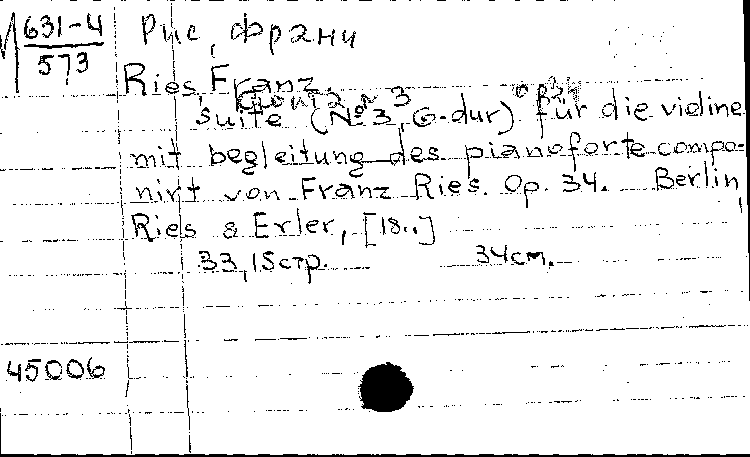 М 631-4
573
Рис, Франц
Ries, Franz.
Сюита № 3 op 34
Suite (№ 3, G-dur) für die violine
mit begleitung des pianoforte compo-
nirt von Franz Ries. Op. 34. Berlin,
Ries & Erler, [18..]
33, 15 стр. 34 см.
45006